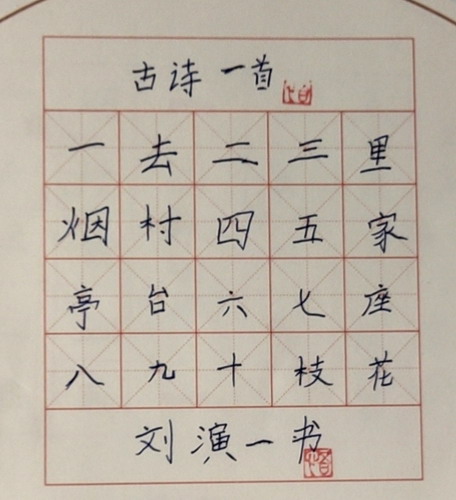 古诗一首
一去二三里
烟村四五家
亭台六七座
八九十枝花
刘演一书